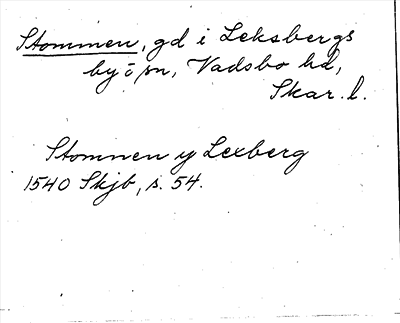 Stommen, gd i Leksbergs
by o sn, Vadsbo hd,
Skar. l.
Stommen y Lexberg
1540 Skjb, s. 54.